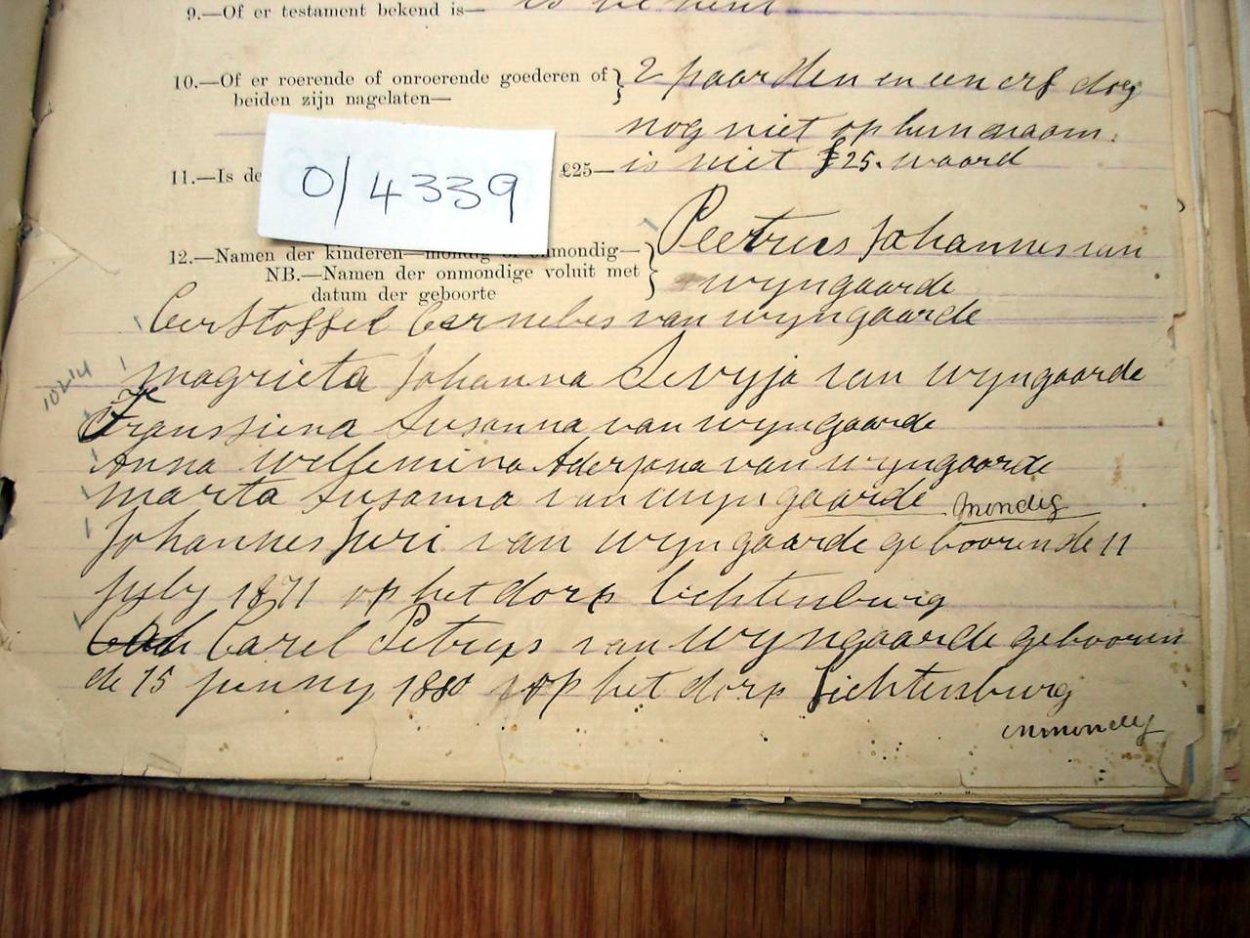 9.—Of er testament bekend is— is be kent
10.—Of er roerende of onroerende goederen of } 2 paarden en een erf dog
beiden zijn nagelaten—
nog niet op hun naam.
11.—Is de £25— is niet £25. waard
O/4339
12.—Namen der kinderen—mondig of onmondig— } Peetrus Johannes van
NB.—Namen der onmondige voluit met wyngaarde
datum der geboorte
Cerstoffel Cernebes van wyngaarde
10214
magrieta Johanna Sevyja van wyngaarde
Fransjiena Susanna van wyngaarde
Anna Wellemina Aderjana van wyngaarde
marta Susanna van wyngaarde mondig
Johannes Juri van wyngaarde gebooren de 11
July 1871 op het dorp lichtenburg
Carel Petrus van wyngaarde gebooren
de 15 junny 1880 op het dorp lichtenburg
onmondig